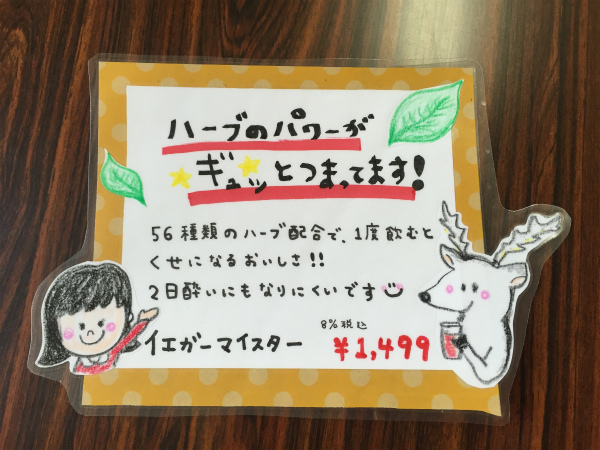 ハーブのパワーが
ギュッとつまってます!
56種類のハーブ配合で、1度飲むと
くせになるおいしさ!!
2日酔いにもなりにくいです
8%税込
イエガーマイスター ¥1,499